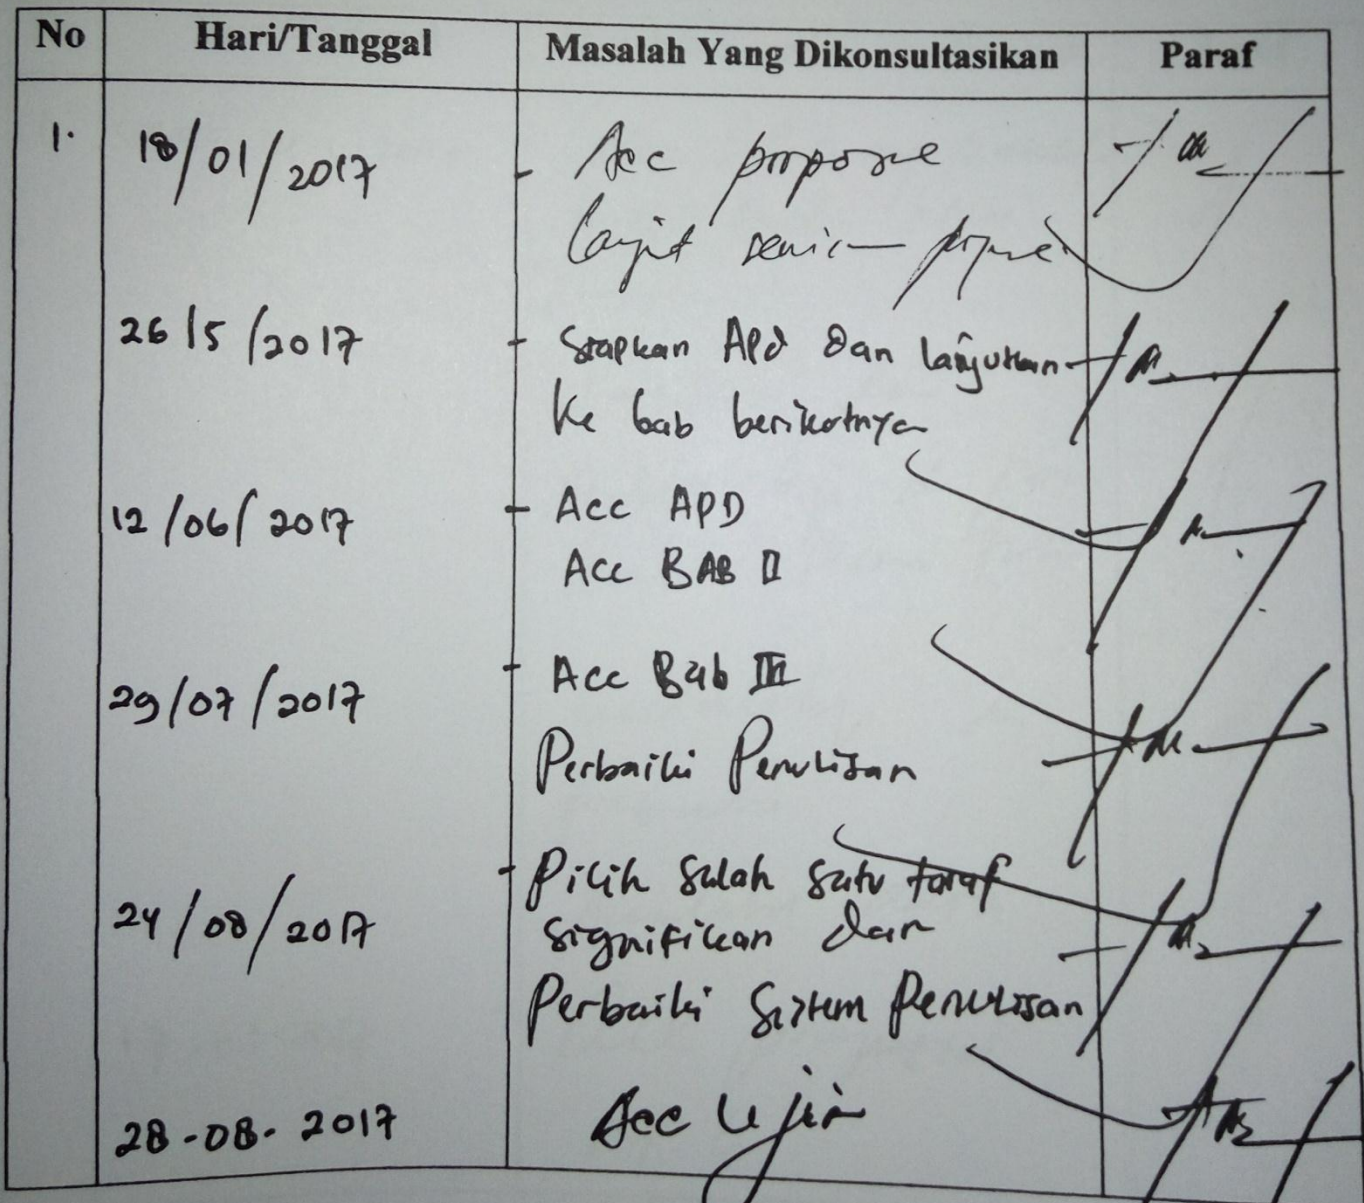 No Hari/Tanggal Masalah Yang Dikonsultasikan Paraf
1. 18/01/2017 - Acc
lanjut
26/5/2017 - Siapkan APD dan lanjutkan
ke bab berikutnya
12/06/2017 - Acc APD
Acc BAB II
29/07/2017 - Acc Bab III
Perbaiki Penulisan
- Pilih salah satu taraf
24/08/2017 signifikan dan
Perbaiki Sistem Penulisan
28-08-2017 Acc Ujian